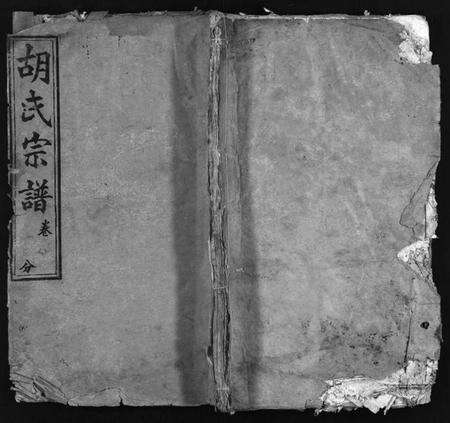 胡氏宗譜 卷 分